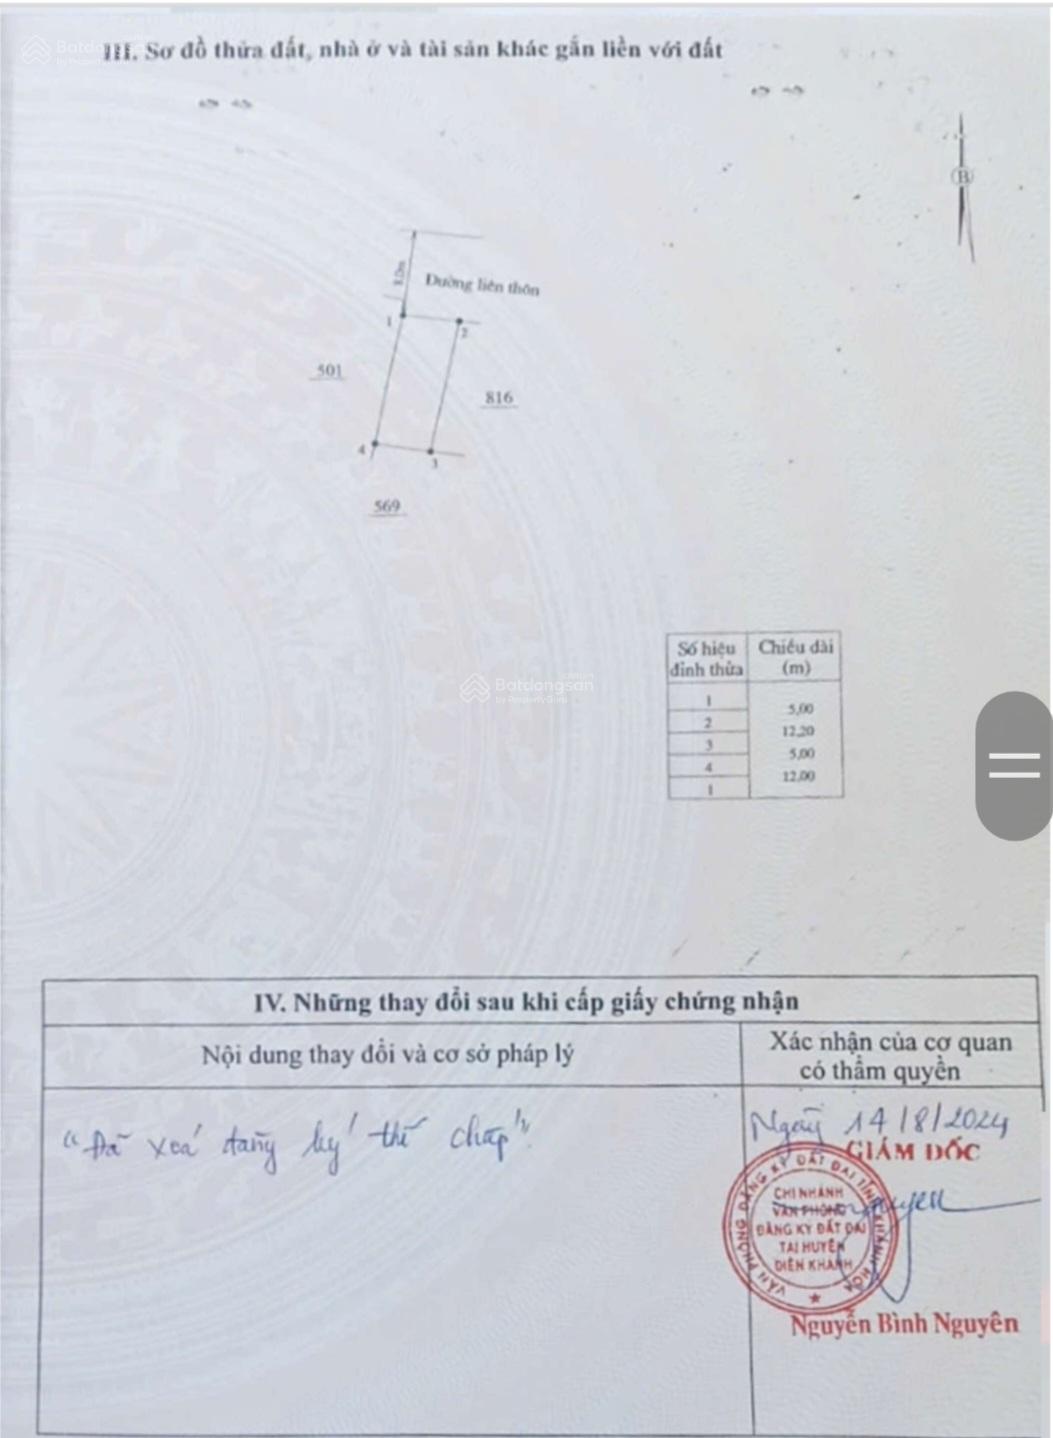 III. Sơ đồ thửa đất, nhà ở và tài sản khác gắn liền với đất
Batdongsan
by PropertyGuru
B
8,0m
Đường liên thôn
1
2
501
816
4
3
569
Số hiệu đỉnh thửa
Chiều dài (m)
1
5,00
2
12,20
3
5,00
4
12,00
1
Batdongsan
by PropertyGuru
IV. Những thay đổi sau khi cấp giấy chứng nhận
Nội dung thay đổi và cơ sở pháp lý
Xác nhận của cơ quan
có thẩm quyền
"Đã xoá đăng ký thế chấp".
Ngày 14/8/2024
GIÁM ĐỐC
VĂN PHÒNG ĐĂNG KÝ ĐẤT ĐAI TỈNH KHÁNH HÒA
CHI NHÁNH
VĂN PHÒNG
ĐĂNG KÝ ĐẤT ĐAI
TẠI HUYỆN
DIÊN KHÁNH
Nguyễn Bình Nguyên